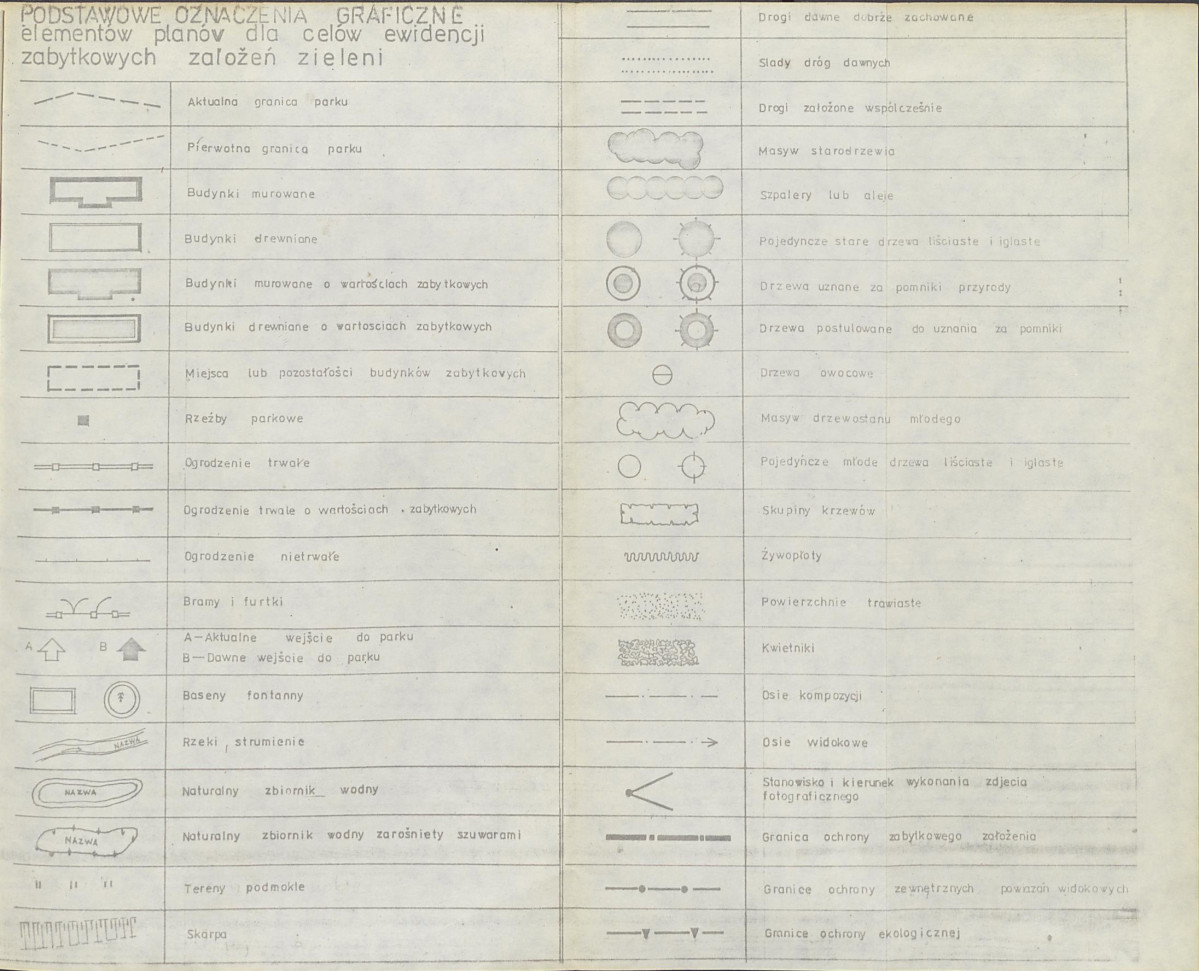 PODSTAWOWE OZNACZENIA GRAFICZNE
elementów planów dla celów ewidencji
zabytkowych założeń zieleni
Aktualna granica parku
Pierwotna granica parku
Budynki murowane
Budynki drewniane
Budynki murowane o wartościach zabytkowych
Budynki drewniane o wartosciach zabytkowych
Miejsca lub pozostałości budynków zabytkowych
Rzeźby parkowe
Ogrodzenie trwałe
Ogrodzenie trwałe o wartościach zabytkowych
Ogrodzenie nietrwałe
Bramy i furtki
A B
A—Aktualne wejście do parku
B—Dawne wejście do parku
Baseny fontanny
NAZWA
Rzeki, strumienie
NAZWA
Naturalny zbiornik wodny
NAZWA
Naturalny zbiornik wodny zarośniety szuwarami
Tereny podmokłe
Skarpa
Drogi dawne dobrze zachowane
Slady dróg dawnych
Drogi założone współcześnie
Masyw starodrzewia
Szpalery lub aleje
Pojedyncze stare drzewa liściaste i iglaste
Drzewa uznane za pomniki przyrody
Drzewa postulowane do uznania za pomniki
Drzewa owocowe
Masyw drzewostanu młodego
Pojedyńcze młode drzewa liściaste i iglaste
Skupiny krzewów
Żywopłoty
Powierzchnie trawiaste
Kwietniki
Osie kompozycji
Osie widokowe
Stanowisko i kierunek wykonania zdjecia
fotograficznego
Granica ochrony zabytkowego założenia
Granice ochrony zewnętrznych powiazań widokowych
Granice ochrony ekologicznej